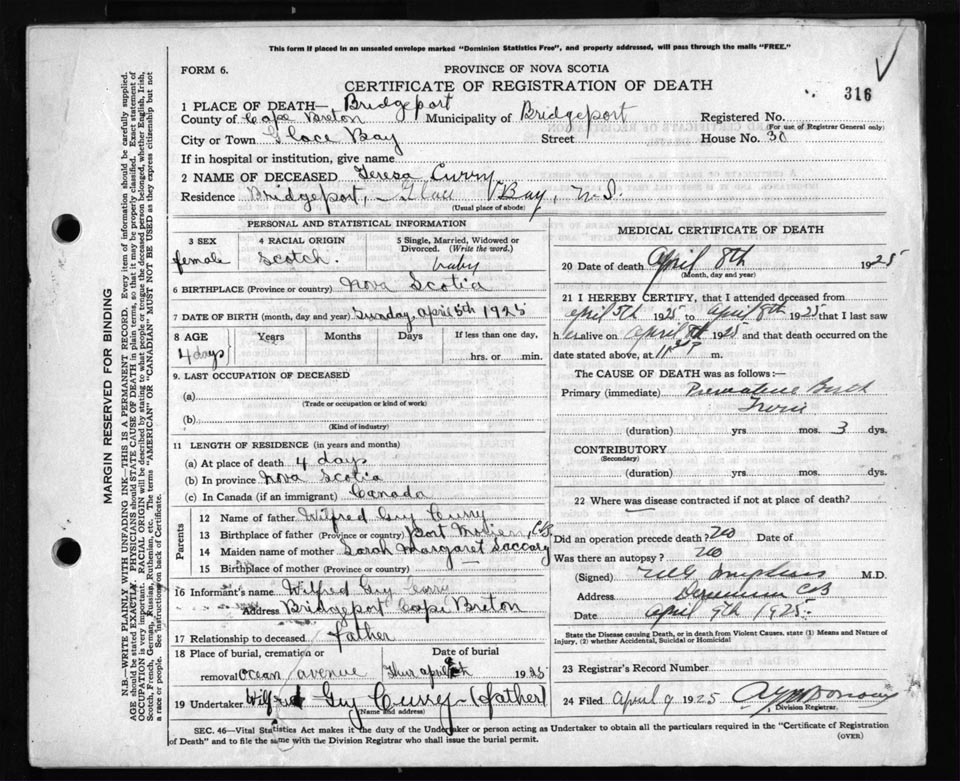 This form if placed in an unsealed envelope marked "Dominion Statistics Free", and properly addressed, will pass through the mails "FREE."
FORM 6.
PROVINCE OF NOVA SCOTIA
CERTIFICATE OF REGISTRATION OF DEATH
316
1 PLACE OF DEATH— Bridgeport
County of Cape Breton Municipality of Bridgeport Registered No.
(For use of Registrar General only)
City or Town Glace Bay Street House No. 30
If in hospital or institution, give name
2 NAME OF DECEASED Teresa Curry
Residence Bridgeport, Glace Bay, N.S.
(Usual place of abode)
PERSONAL AND STATISTICAL INFORMATION
3 SEX female
4 RACIAL ORIGIN Scotch.
5 Single, Married, Widowed or Divorced. (Write the word.) baby
6 BIRTHPLACE (Province or country) Nova Scotia
7 DATE OF BIRTH (month, day and year) Sunday, April 5th 1925
8 AGE Years Months Days If less than one day,
4 days hrs. or min.
9. LAST OCCUPATION OF DECEASED
(a)
(Trade or occupation or kind of work)
(b)
(Kind of industry)
11 LENGTH OF RESIDENCE (in years and months)
(a) At place of death 4 days
(b) In province Nova Scotia
(c) In Canada (if an immigrant) Canada
Parents
12 Name of father Wilfred Guy Curry
13 Birthplace of father (Province or country) Port Morien, C.B.
14 Maiden name of mother Sarah Margaret
15 Birthplace of mother (Province or country)
16 Informant's name Wilfred Guy Curry
Address Bridgeport Cape Breton
17 Relationship to deceased father
18 Place of burial, cremation or Date of burial
removal Ocean Avenue Thur April 9th 1925
19 Undertaker Wilfred Guy Curry (father)
(Name and address)
MEDICAL CERTIFICATE OF DEATH
20 Date of death April 8th 1925
(Month, day and year)
21 I HEREBY CERTIFY, that I attended deceased from
April 5th 1925 to April 8th 1925 that I last saw
h er alive on April 8th 1925 and that death occurred on the
date stated above, at 11 P m.
The CAUSE OF DEATH was as follows:—
Primary (immediate) Premature Birth
Twin
(duration) yrs mos. 3 dys.
CONTRIBUTORY
(Secondary)
(duration) yrs. mos. dys.
22 Where was disease contracted if not at place of death?
Did an operation precede death? no Date of
Was there an autopsy? no
(Signed) M.D.
Address Dominion CB
Date April 9th 1925
State the Disease causing Death, or in death from Violent Causes, state (1) Means and Nature of
Injury, (2) whether Accidental, Suicidal or Homicidal
23 Registrar's Record Number
24 Filed April 9 1925
Division Registrar.
SEC. 46—Vital Statistics Act makes it the duty of the Undertaker or person acting as Undertaker to obtain all the particulars required in the "Certificate of Registration
of Death" and to file the same with the Division Registrar who shall issue the burial permit.
(OVER)
MARGIN RESERVED FOR BINDING
N.B.—WRITE PLAINLY WITH UNFADING INK—THIS IS A PERMANENT RECORD. Every item of information should be carefully supplied.
AGE should be stated EXACTLY. PHYSICIANS should STATE CAUSE OF DEATH in plain terms, so that it may be properly classified. Exact statement of
OCCUPATION is very important. RACIAL ORIGIN will be described by stating to what people or tongue the deceased person belonged, whether English, Irish,
Scotch, French, German, Russian, Ruthenian, etc. The terms "AMERICAN" or "CANADIAN" MUST NOT BE USED as they express citizenship but not
a race or people. See instructions on back of Certificate.